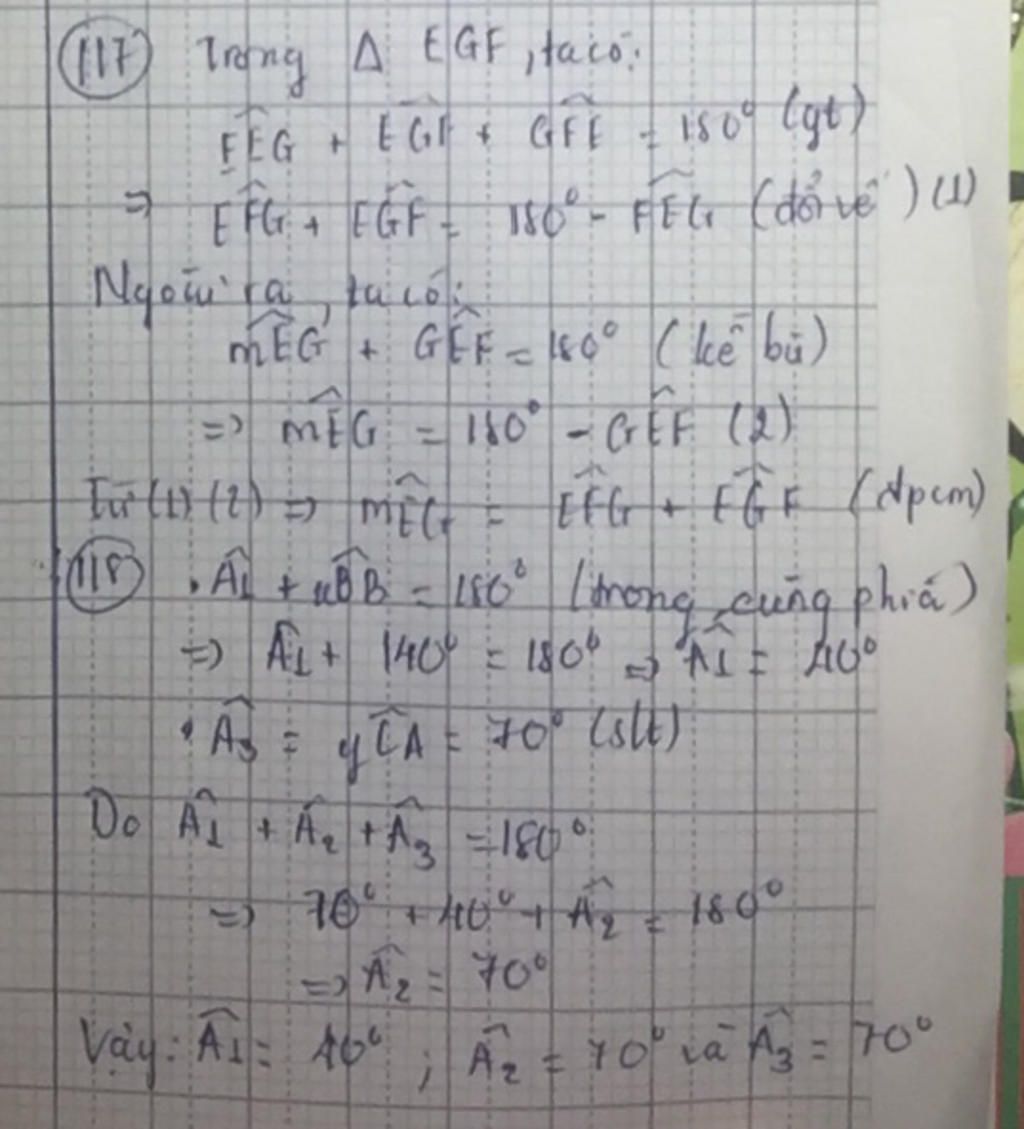 117 Trong Δ EGF, ta có:
F̂EG + EĜF + GF̂E = 180° (gt)
⇒ EF̂G + EĜF = 180° - FÊG (đổi vế) (1)
Ngoài ra, ta có:
mÊG + GÊF = 180° (kề bù)
⇒ mÊG = 180° - GÊF (2)
Từ (1) (2) ⇒ mÊG = EF̂G + EĜF (đpcm)
118 . Â1 + uB̂B = 180° (trong cùng phía)
⇒ Â1 + 140° = 180° ⇒ Â1 = 40°
. Â3 = yĈA = 70° (slt)
Do Â1 + Â2 + Â3 = 180°
⇒ 70° + 40° + Â2 = 180°
⇒ Â2 = 70°
Vậy: Â1 = 40° ; Â2 = 70° và Â3 = 70°